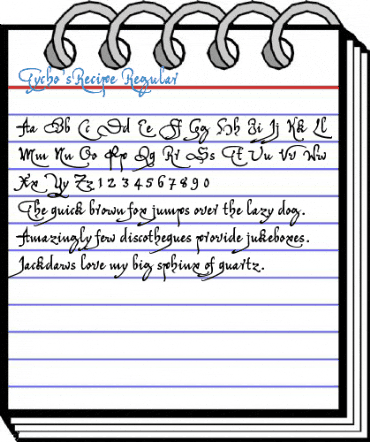 Tycho'sRecipe Regular
Aa Bb Cc Dd Ee Ff Gg Hh Ii Jj Kk Ll
Mm Nn Oo Pp Qq Rr Ss Tt Uu Vv Ww
Xx Yy Zz 1 2 3 4 5 6 7 8 9 0
The quick brown fox jumps over the lazy dog.
Amazingly few discotheques provide jukeboxes.
Jackdaws love my big sphinx of quartz.